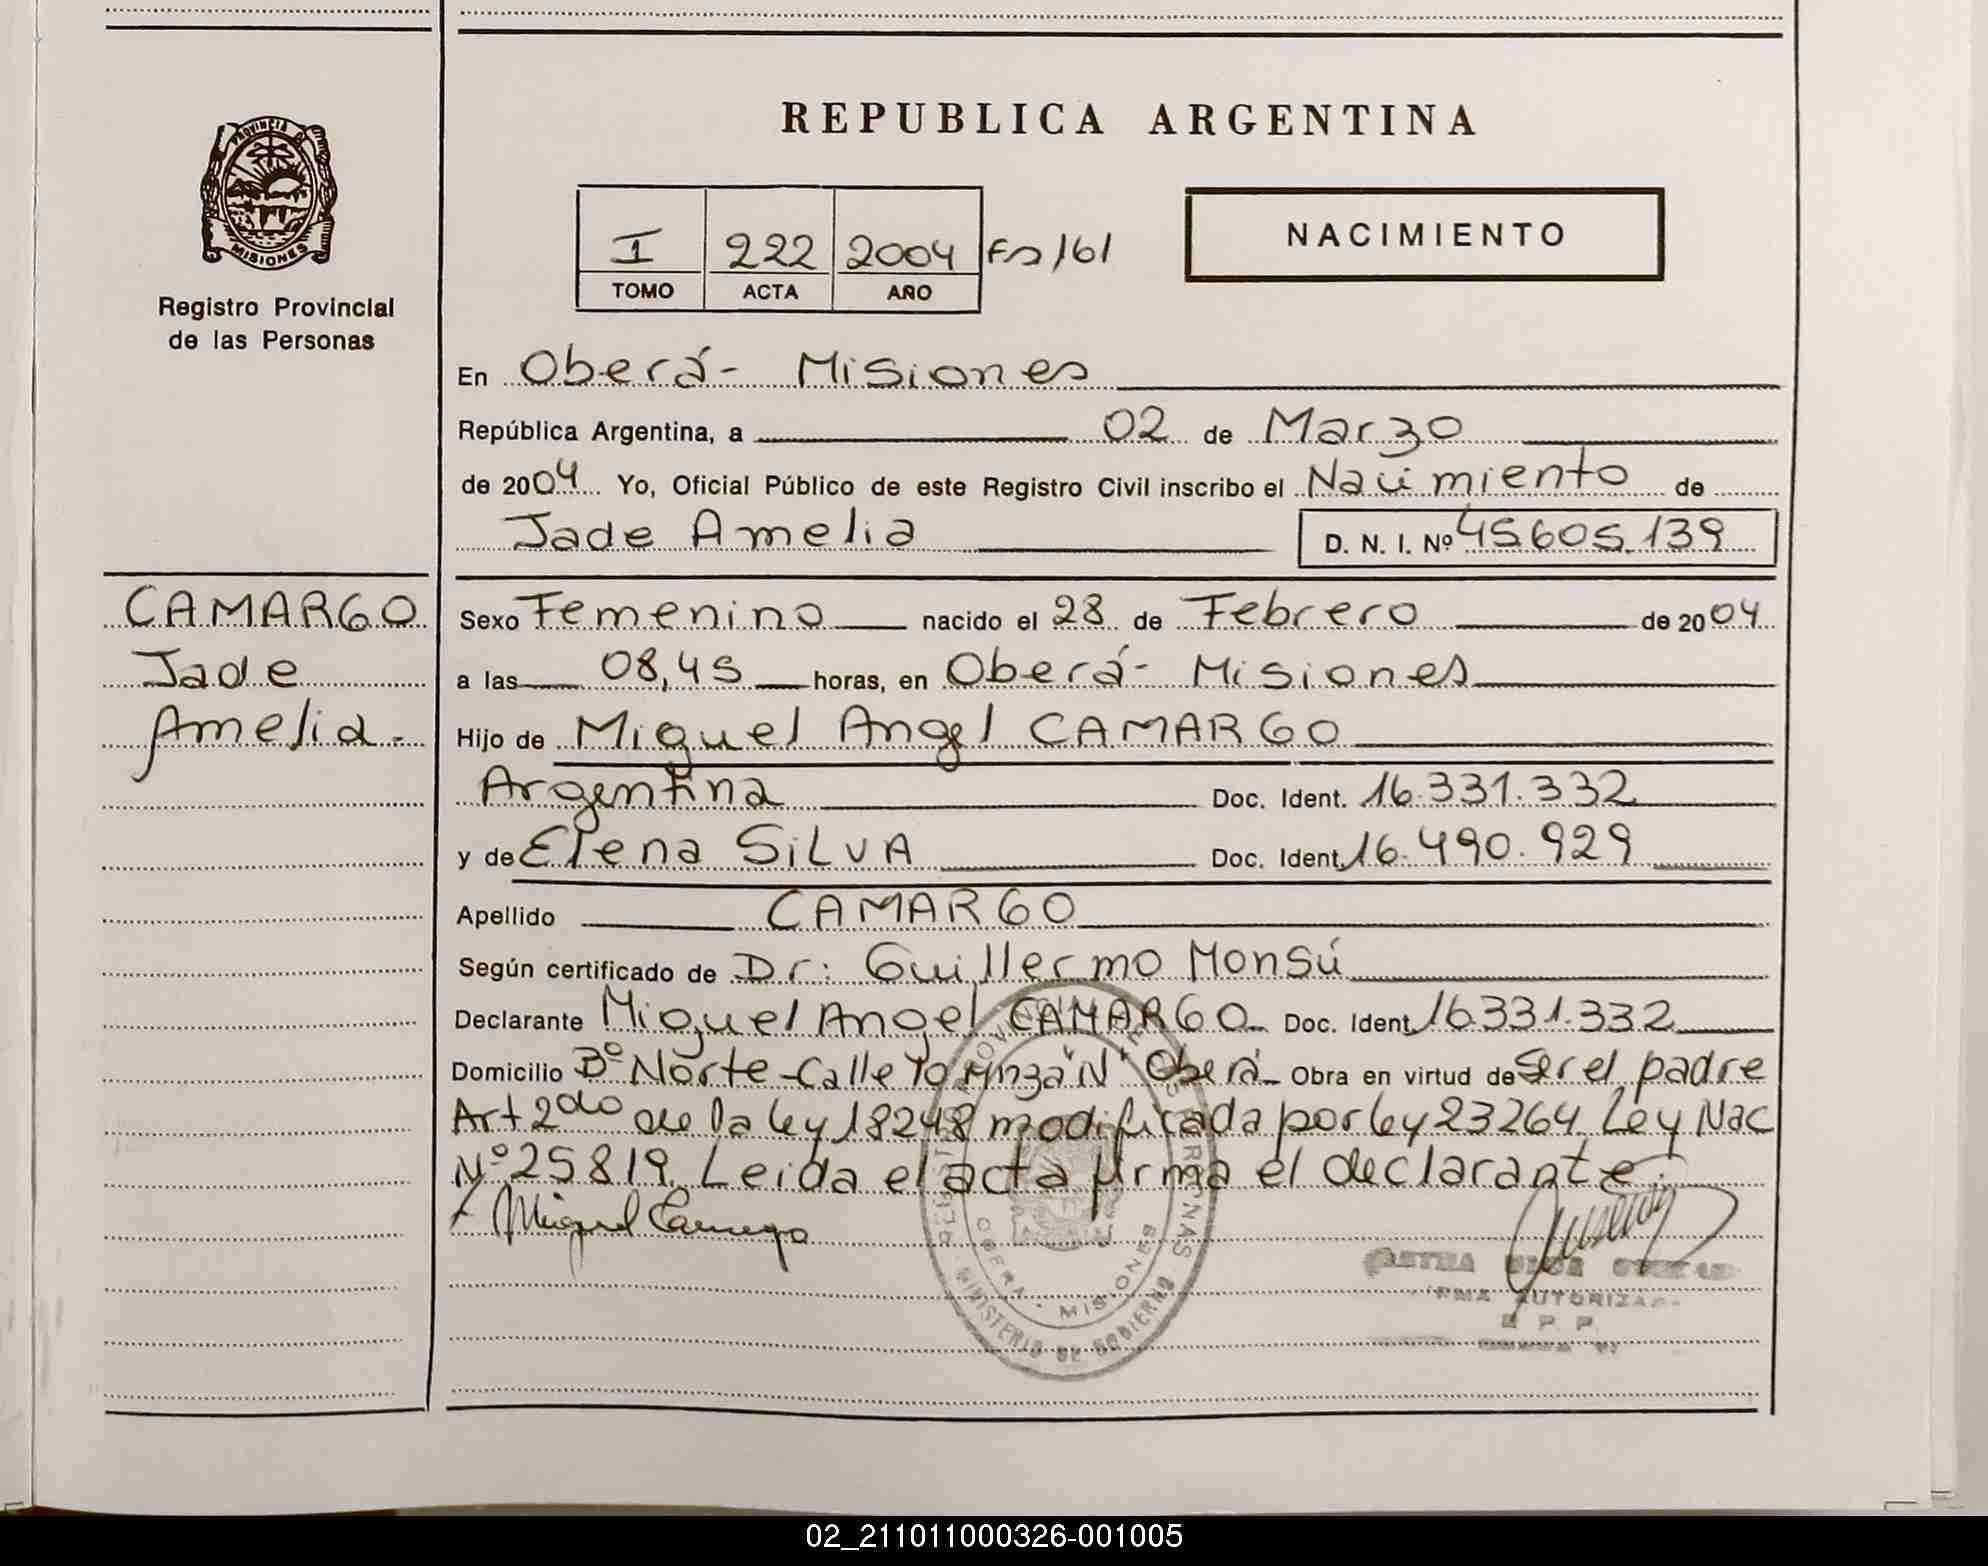 REPUBLICA ARGENTINA
PROVINCIA DE MISIONES
Registro Provincial
de las Personas
I 222 2004 Fs 161
TOMO ACTA AÑO
NACIMIENTO
En Oberá - Misiones
República Argentina, a 02 de Marzo
de 2004 Yo, Oficial Público de este Registro Civil inscribo el Nacimiento de
Jade Amelia D. N. I. Nº 45.605.139
CAMARGO
Jade
Amelia.-
Sexo Femenino nacido el 28 de Febrero de 2004
a las 08,45 horas, en Oberá - Misiones
Hijo de Miguel Angel CAMARGO
Argentina Doc. Ident. 16.331.332
y de Elena SILVA Doc. Ident. 16.490.929
Apellido CAMARGO
Según certificado de Dr: Guillermo Monsú
Declarante Miguel Angel CAMARGO Doc. Ident. 16.331.332
Domicilio Bº Norte - Calle "N" Oberá - Obra en virtud de Ser el padre
Art 2do de la ley 18248 modificada por ley 23264 Ley Nac
Nº 25819. Leida el acta firma el declarante.
Miguel Camargo
OBERA - MISIONES
MINISTERIO DE GOBIERNO
AUTORIZA